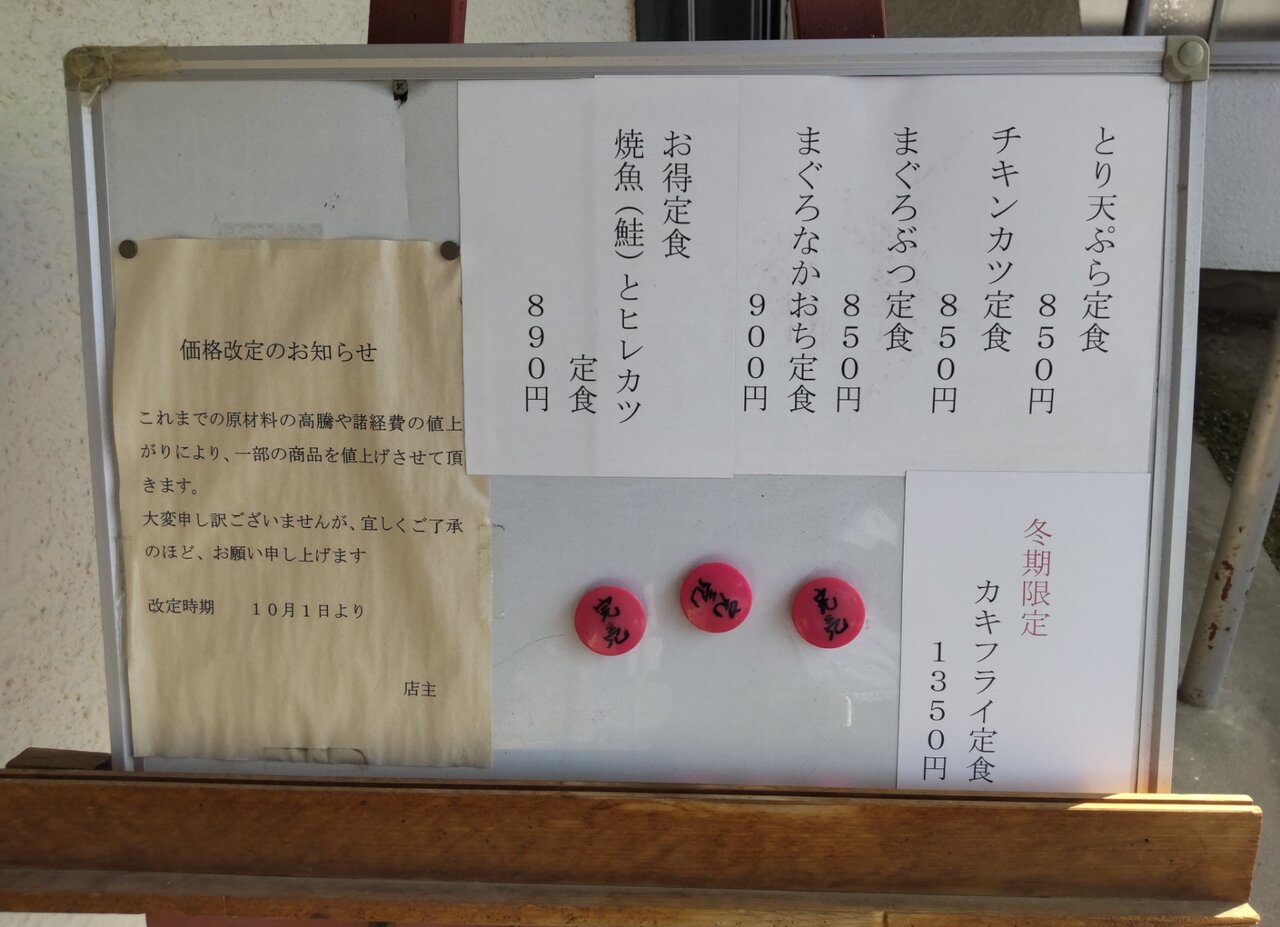 とり天ぷら定食
８５０円
チキンカツ定食
８５０円
まぐろぶつ定食
８５０円
まぐろなかおち定食
９００円
お得定食
焼魚（鮭）とヒレカツ
定食
８９０円
冬期限定
カキフライ定食
１３５０円
価格改定のお知らせ
これまでの原材料の高騰や諸経費の値上
がりにより、一部の商品を値上げさせて頂
きます。
大変申し訳ございませんが、宜しくご了承
のほど、お願い申し上げます
改定時期　１０月１日より
店主
完売
完売
完売